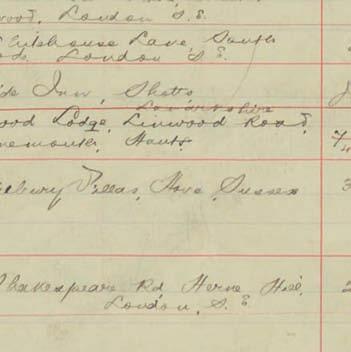 London S.E.
House Lane, South
London S.E.
Inn, Shotts
Lanarkshire
ood Lodge, Linwood Road,
nemouth, Hants.
ebury Villas, Hove, Sussex
Shakespeare Rd Herne Hill,
London, S.E.